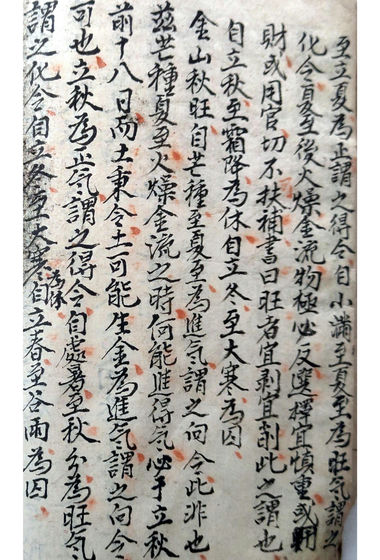 至立夏為正謂之得令自小滿至夏至為旺氣謂之
化令夏至後火燥金流物極必反選擇宜慎重或開
財或用官切不扶補書曰旺者宜剥宜削此之謂也
自立秋至霜降為休自立冬至大寒為囚
金山秋旺自芒種至夏至為進氣謂之向令此非也
茲芒種夏至火燥金流之時何能進得氣必于立秋
前十八日而土秉令土可能生金為進氣謂之向令
可也立秋為正氣謂之得令自處暑至秋分為旺氣
謂之化令自立冬至大寒為休自立春至谷雨為囚